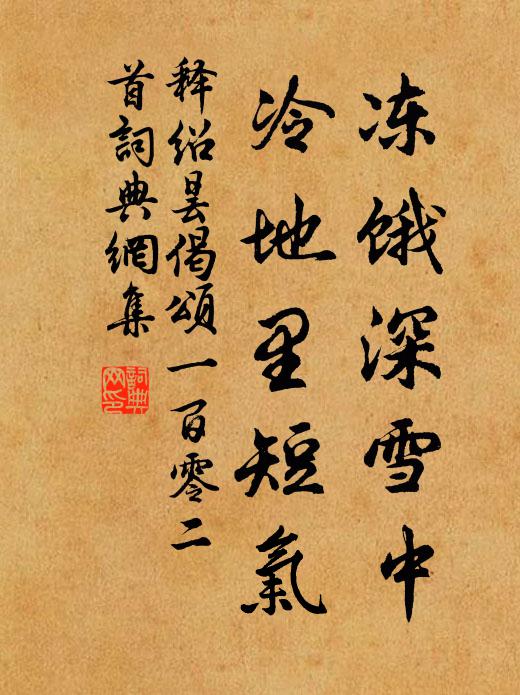 冻饿深雪中
冷地里短氣
释绍昙偈頌一百零二
首詞典網集
詞典
网印